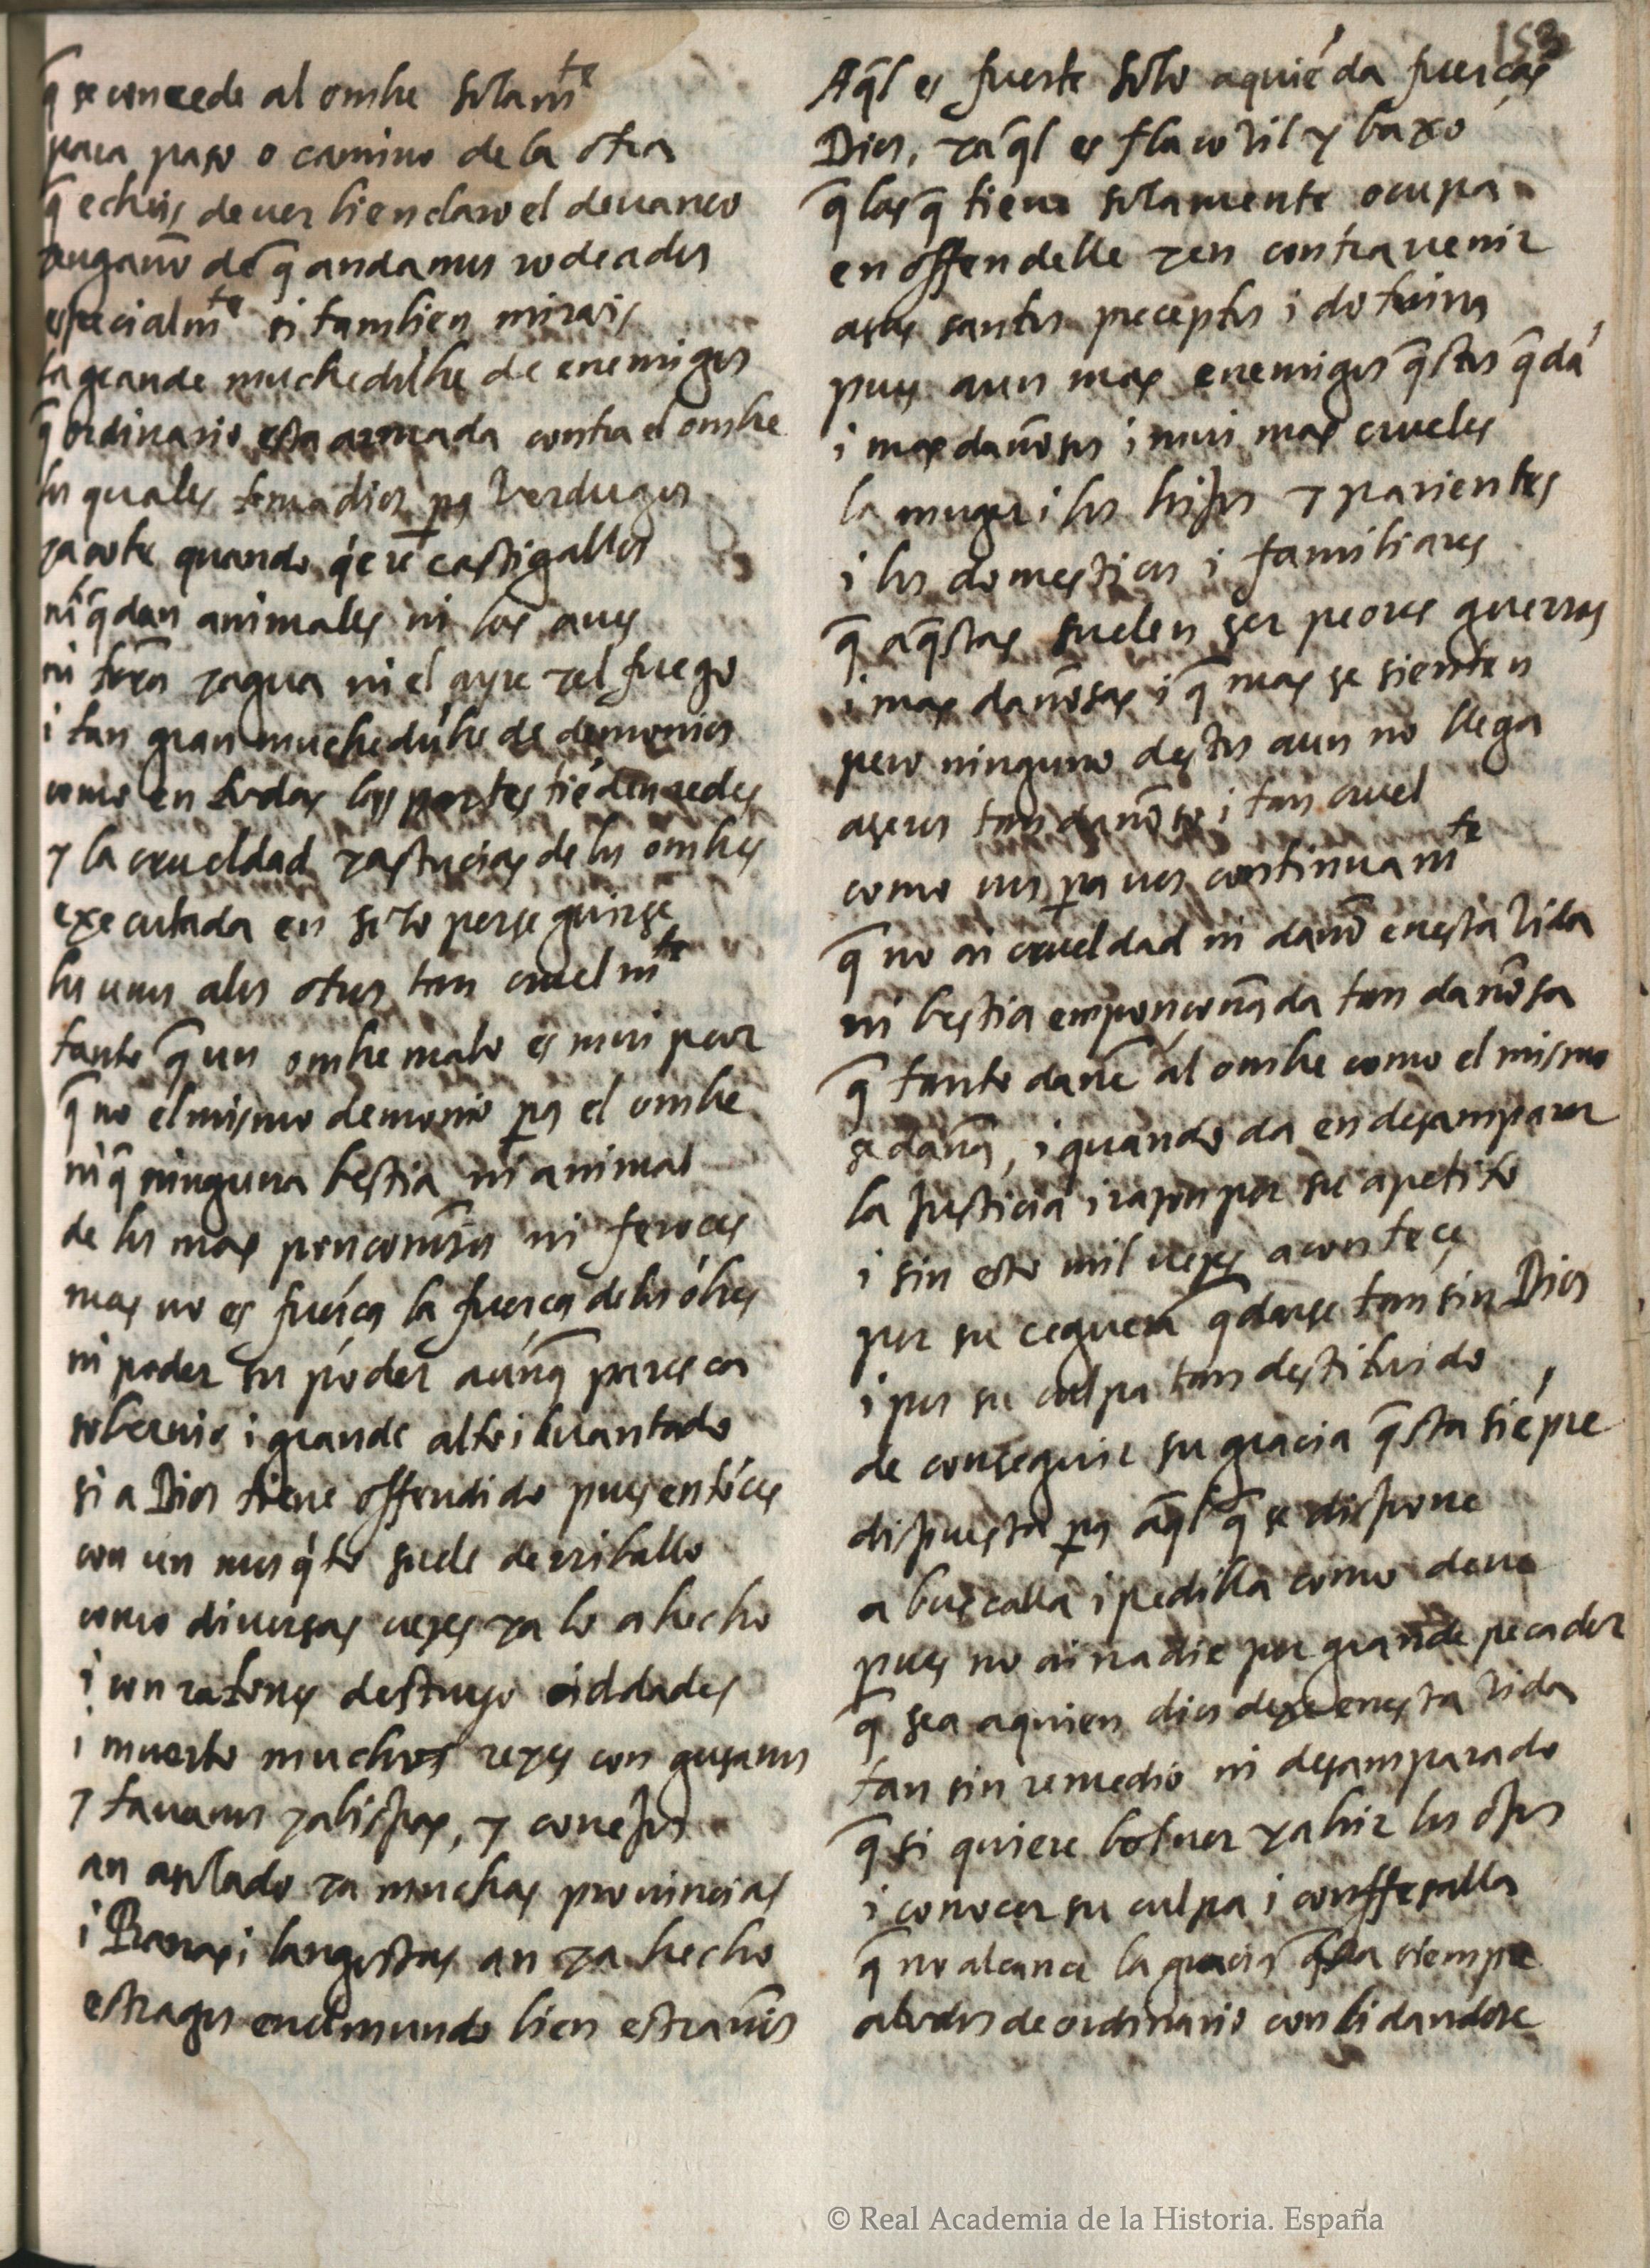 153
q̃ se concede al ombre solamte
para paso o camino de la otra
q̃ echéis de ver bien claro el devaneo
y engaño de q̃ andamos rodeados
especialmte si tambien mirais
la grande muchedũbre de enemigos
q̃ ordinario esta armada contra el ombre
los quales toma dios pa verdugos
y açote quando q́ere castigallos
ni q̃dan animales ni las aves
ni trã y agua ni el ayre y el fuego
i tan gran muchedũbre de demonios
como en todas las partes tiẽden redes
y la crueldad y astucias de los ombres
executada en solo perseguirse
los unos a los otros tan cruelmte
tanto q̃ un ombre malo es mui peor
q̃ no el mismo demonio pa el ombre
ni q̃ ninguna bestia ni animal
de los mas ponçoñosos ni feroces
mas no es fuerça la fuerça de los õbres
ni poder su poder aunq̃ paresca
sobervio i grande alto i levantado
si a Dios tiene offendido pues entõces
con un mosq́to suele derriballo
como diversas vezes ya lo a hecho
i con ratones destruyo ciddades
i muerto muchos reyes con gusanos
y tavanos y abispas, y conejos
an asolado ya muchas provincias
i Ranas i langostas an ya hecho
estragos en el mundo bien estraños
Aq̃l es fuerte solo a quiẽ da fuerças
Dios, y aq̃l es flaco vil y baxo
q̃ las q̃ tiene solamente ocupa
en offendelle y en contravenir
a sus santos preceptos i dotrina
pues aun mas enemigos q̃stos q̃dã
i mas dañosos i mui mas crueles
la muger i los hijos y parientes
i los domesticos i familiares
q̃ aq̃stas suelen ser peores guerras
i mas dañosas i q̃ mas se sienten
pero ninguno destos aun no llega
a seros tan dañoso i tan cruel
como vos pa vos continuamte
q̃ no ai crueldad ni daño en esta vida
ni bestia emponçoñada tan dañosa
q̃ tanto dañe al ombre como el mismo
se daña, i quando da en desamparar
la justicia i razon por su apetito
i sin esto mil vezes acontece
por su ceguera q̃darse tan sin Dios
i por su culpa tan destituido
de conseguir su gracia q̃sta siẽpre
dispuesta pa aq̃l q̃ se dispone
a buscalla i pedilla como deve
pues no ai nadie por grande pecador
q̃ sea a quien dios dexe en esta vida
tan sin remedio ni desamparado
q̃ si quiere bolver y abrir los ojos
i conocer su culpa i conffesalla
q̃ no alcance la gracia q̃sta siempre
a todos de ordinario conbidandose
© Real Academia de la Historia. España